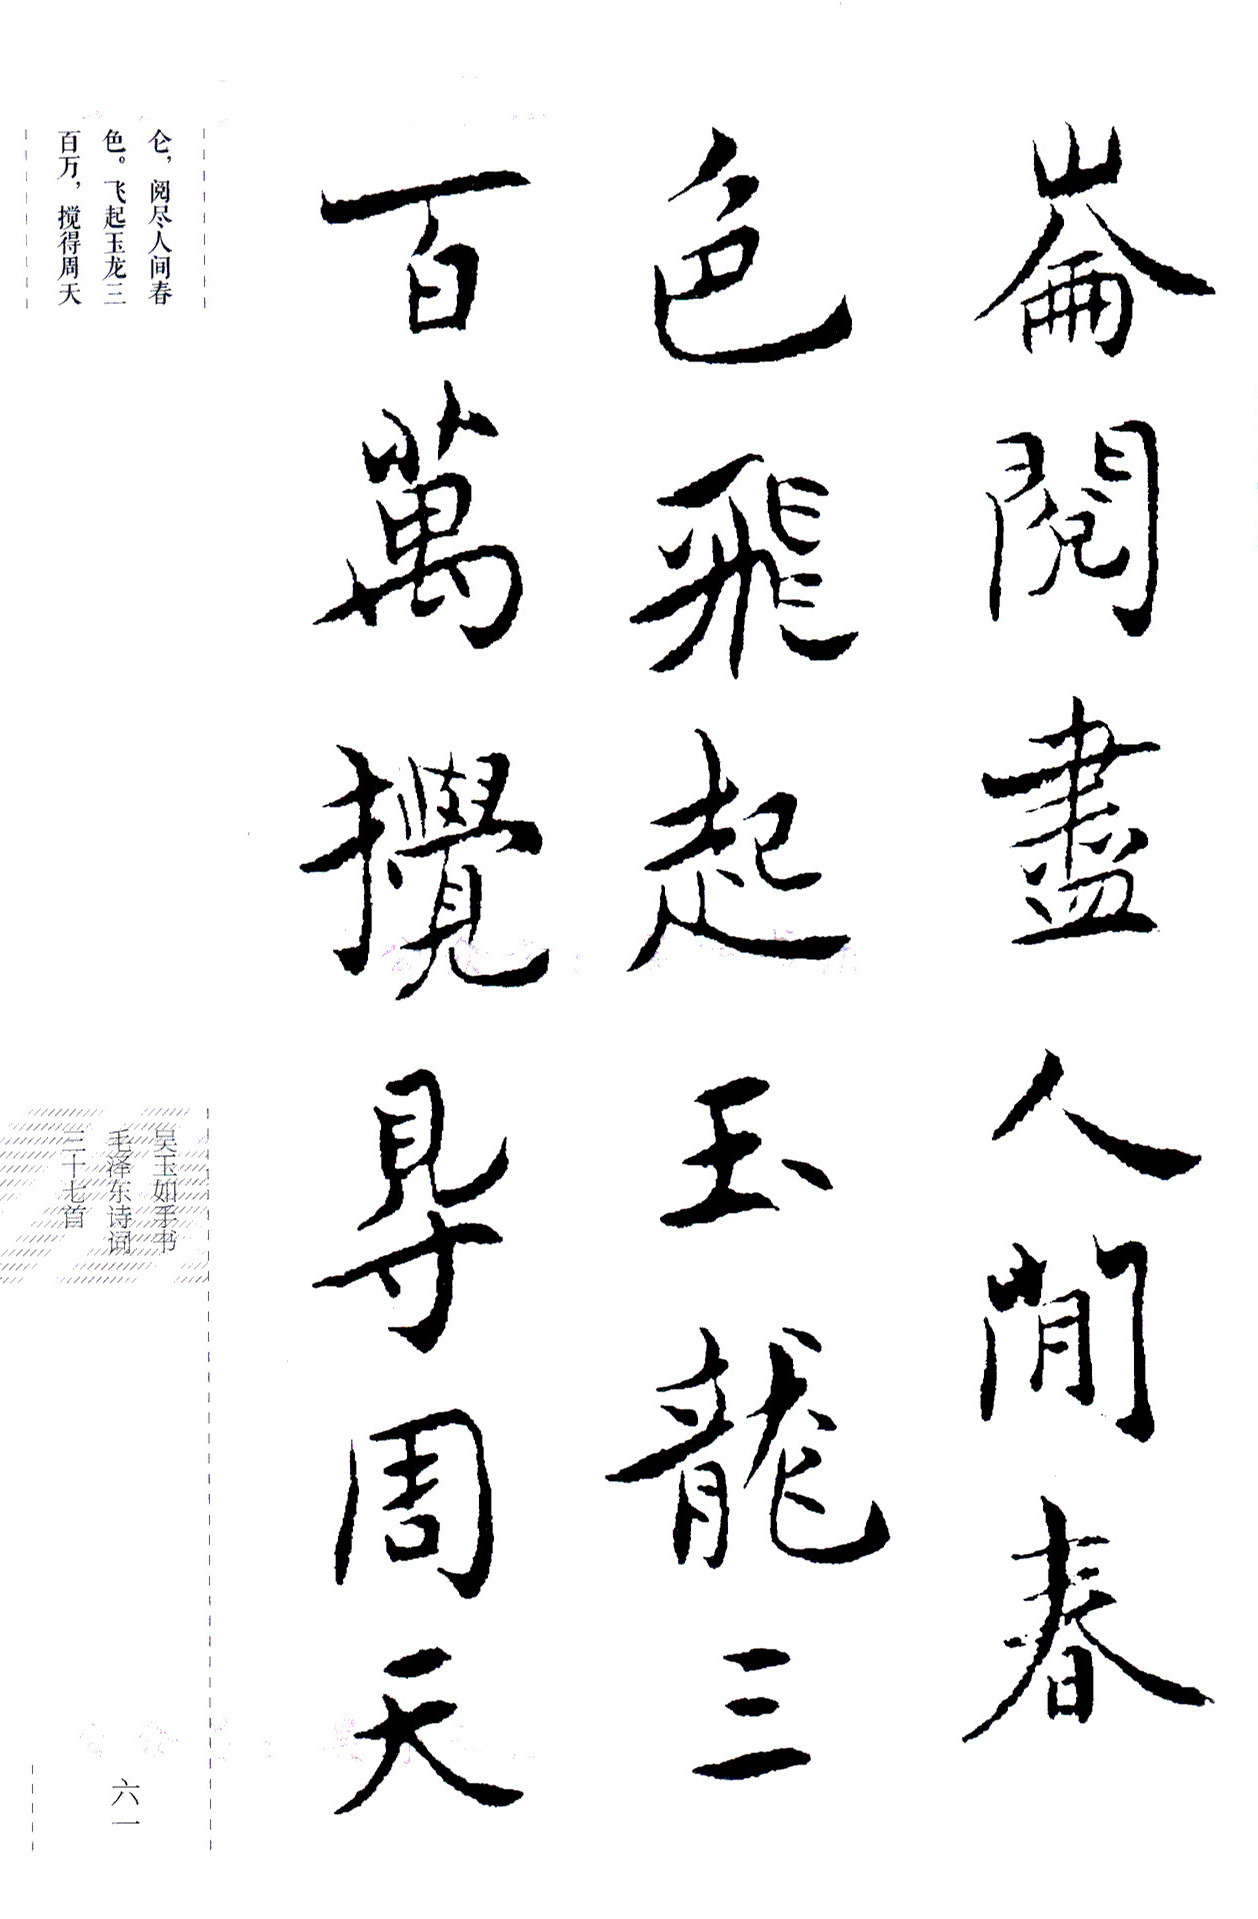 崙閱盡人間春
色飛起玉龍三
百萬攪得周天
仑，阅尽人间春
色。飞起玉龙三
百万，搅得周天
吴玉如手书
毛泽东诗词
三十七首
六一